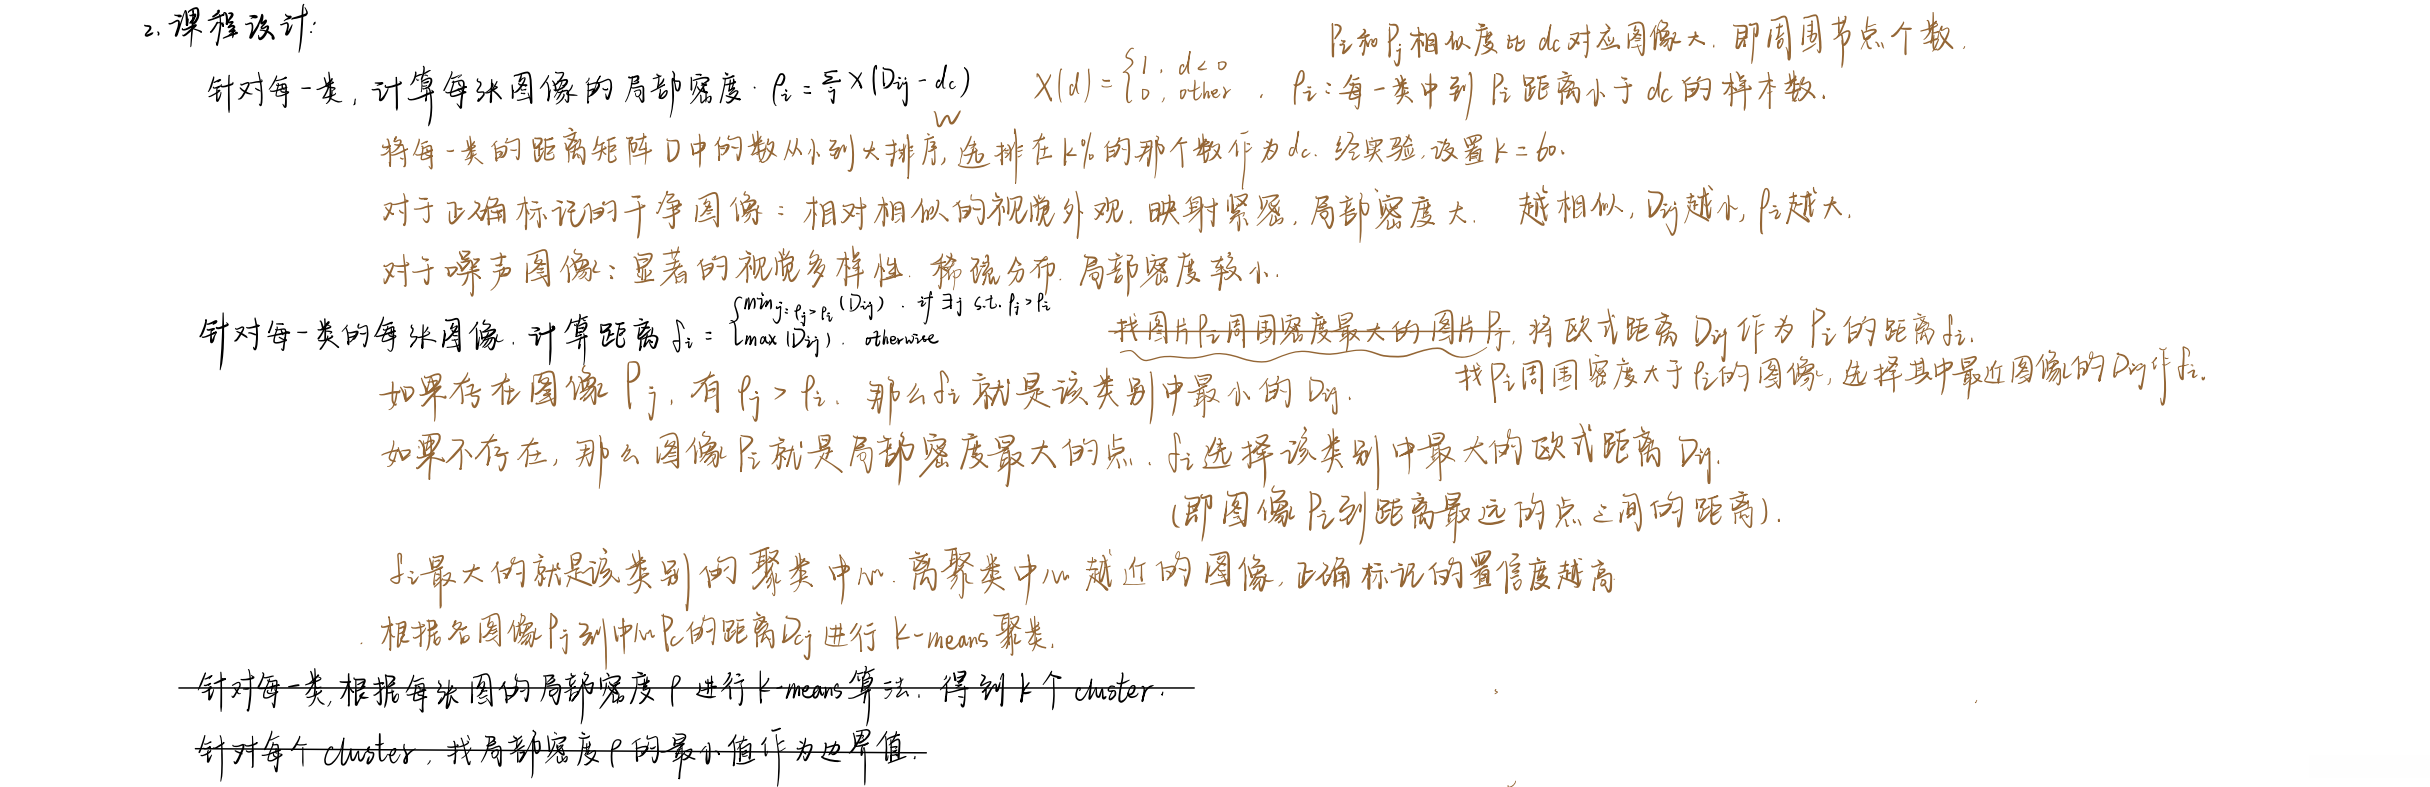 2. 课程设计:
Pi和Pj相似度比dc对应图像大. 即周围节点个数.
针对每一类, 计算每张图像的局部密度. ρi = Σj X(Dij - dc)  X(d) = {1, d<0  0, other . ρi: 每一类中到Pi距离小于dc的样本数.
将每一类的距离矩阵D中的数从小到大排序, 选排在k%的那个数作为dc. 经实验, 设置k=60.
对于正确标记的干净图像: 相对相似的视觉外观. 映射紧密, 局部密度大. 越相似, Dij越小, ρi越大.
对于噪声图像: 显著的视觉多样性. 稀疏分布. 局部密度较小.
针对每一类的每张图像. 计算距离 δi = {min j: ρj>ρi (Dij) . if ∃j s.t. ρj>ρi  max(Dij). otherwise
找图片Pi周围密度最大的图片Pj, 将欧式距离Dij作为Pi的距离δi.
找Pi周围密度大于ρi的图像, 选择其中最近图像的Dij作δi.
如果存在图像Pj, 有ρj>ρi. 那么δi就是该类别中最小的Dij.
如果不存在, 那么图像Pi就是局部密度最大的点. δi选择该类别中最大的欧式距离Dij.
(即图像Pi到距离最远的点之间的距离).
δi最大的就是该类别的聚类中心. 离聚类中心越近的图像, 正确标记的置信度越高
. 根据各图像Pj到中心Pc的距离Dcj进行k-means聚类.
针对每一类, 根据每张图的局部密度ρ进行k-means算法. 得到k个cluster.
针对每个cluster, 找局部密度ρ的最小值作为边界值.